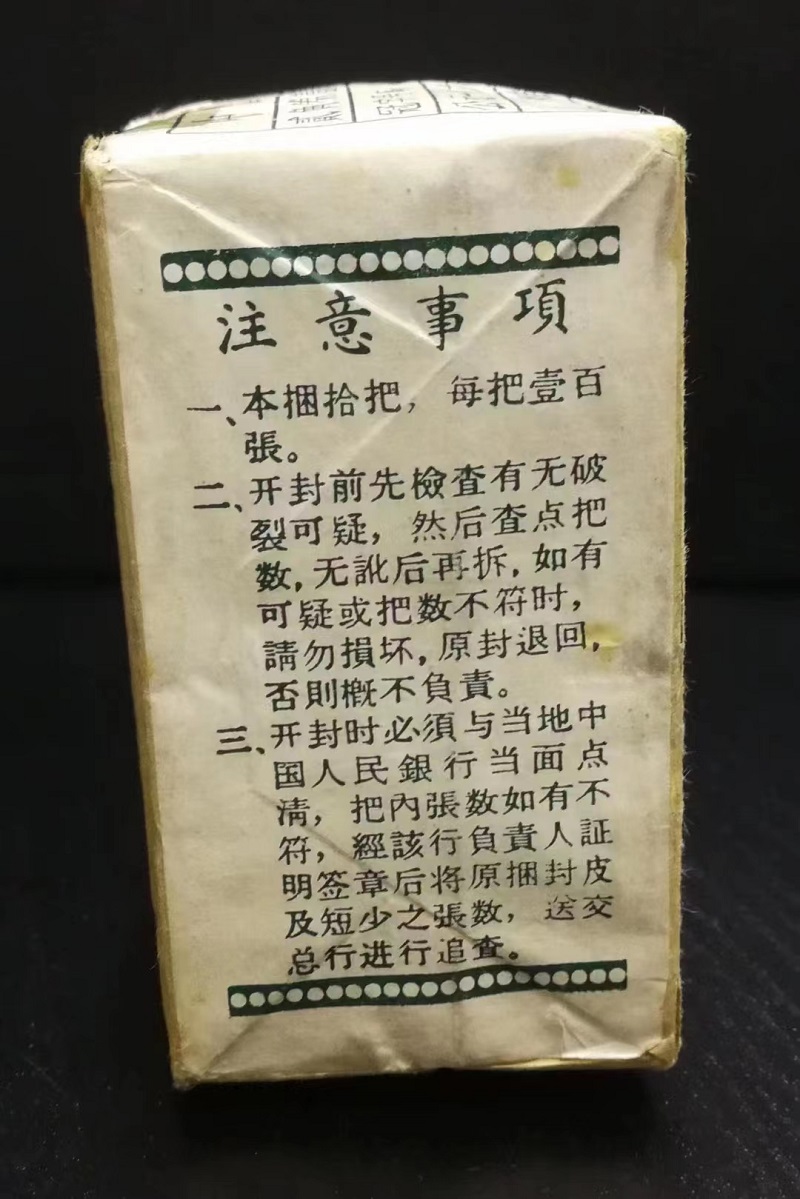 注意事項
一、本捆拾把，每把壹百
張。
二、开封前先檢查有无破
裂可疑，然后查点把
数，无訛后再拆，如有
可疑或把数不符时，
請勿損坏，原封退回，
否則概不負責。
三、开封时必須与当地中
国人民銀行当面点
清，把內張数如有不
符，經該行負責人証
明签章后将原捆封皮
及短少之張数，送交
总行进行追查。